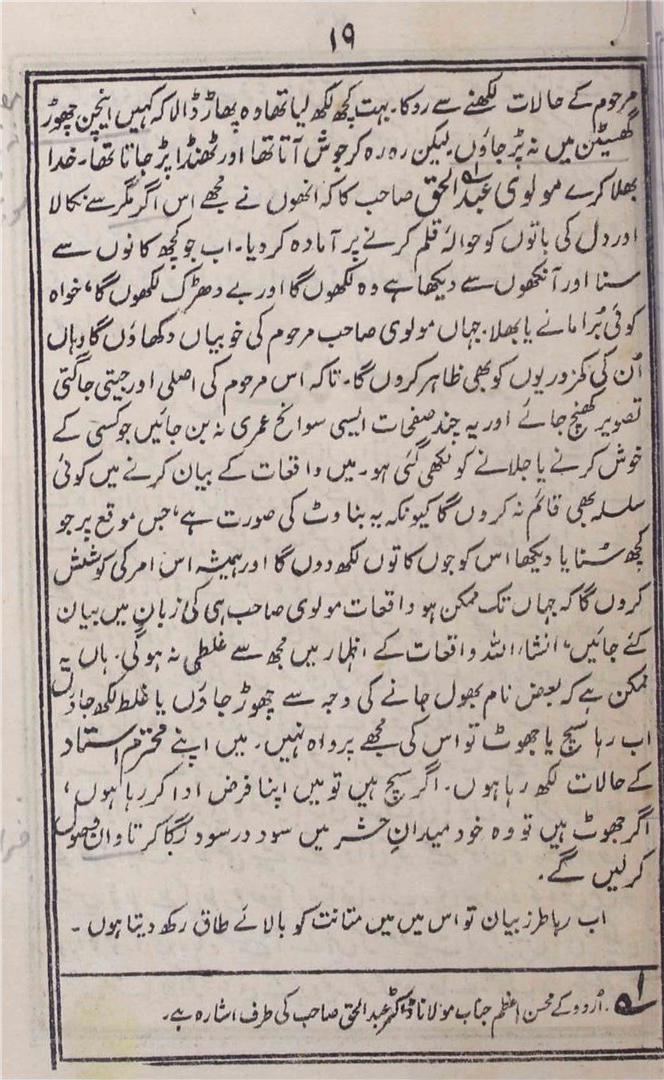 ۱۹
مرحوم کے حالات لکھنے سے روکا۔ بہت کچھ لکھ لیا تھا وہ پھاڑ ڈالا کہ کہیں اینچن چھوڑ
گھسیٹن میں نہ پڑ جاؤں۔ لیکن رہ رہ کر جوش آتا تھا اور ٹھنڈا پڑ جاتا تھا۔ خدا
بھلا کرے مولوی عبدالحق۱ صاحب کا کہ انھوں نے مجھے اس اگر مگر سے نکالا
اور دل کی باتوں کو حوالۂ قلم کرنے پر آمادہ کر دیا۔ اب جو کچھ کانوں سے
سنا اور آنکھوں سے دیکھا ہے وہ لکھوں گا اور بے دھڑک لکھوں گا، خواہ
کوئی بُرا مانے یا بھلا۔ جہاں مولوی صاحب مرحوم کی خوبیاں دکھاؤں گا وہاں
اُن کی کمزوریوں کو بھی ظاہر کروں گا۔ تاکہ اس مرحوم کی اصلی اور جیتی جاگتی
تصویر کھنچ جائے اور یہ چند صفحات ایسی سوانح عمری نہ بن جائیں جو کسی کے
خوش کرنے یا جلانے کو لکھی گئی ہو۔ میں واقعات کے بیان کرنے میں کوئی
سلسلہ بھی قائم نہ کروں گا کیونکہ یہ بناوٹ کی صورت ہے، جس موقع پر جو
کچھ سُنا یا دیکھا اس کو جوں کا توں لکھ دوں گا اور ہمیشہ اس امر کی کوشش
کروں گا کہ جہاں تک ممکن ہو واقعات مولوی صاحب ہی کی زبان میں بیان
کئے جائیں، انشاءاللہ واقعات کے اظہار میں مجھ سے غلطی نہ ہوگی۔ ہاں یہ
ممکن ہے کہ بعض نام بھول جانے کی وجہ سے چھوڑ جاؤں یا غلط لکھ جاؤں
اب رہا سچ یا جھوٹ تو اس کی مجھے پرواہ نہیں۔ میں اپنے محترم استاد
کے حالات لکھ رہا ہوں۔ اگر سچ ہیں تو میں اپنا فرض ادا کر رہا ہوں،
اگر جھوٹ ہیں تو وہ خود میدانِ حشر میں سود در سود لگا کر تاوان وصول
کرلیں گے۔
اب رہا طرز بیان تو اس میں میں متانت کو بالائے طاق رکھ دیتا ہوں۔
۱۔ اُردو کے محسن اعظم جناب مولانا ڈاکٹر عبدالحق صاحب کی طرف اشارہ ہے۔